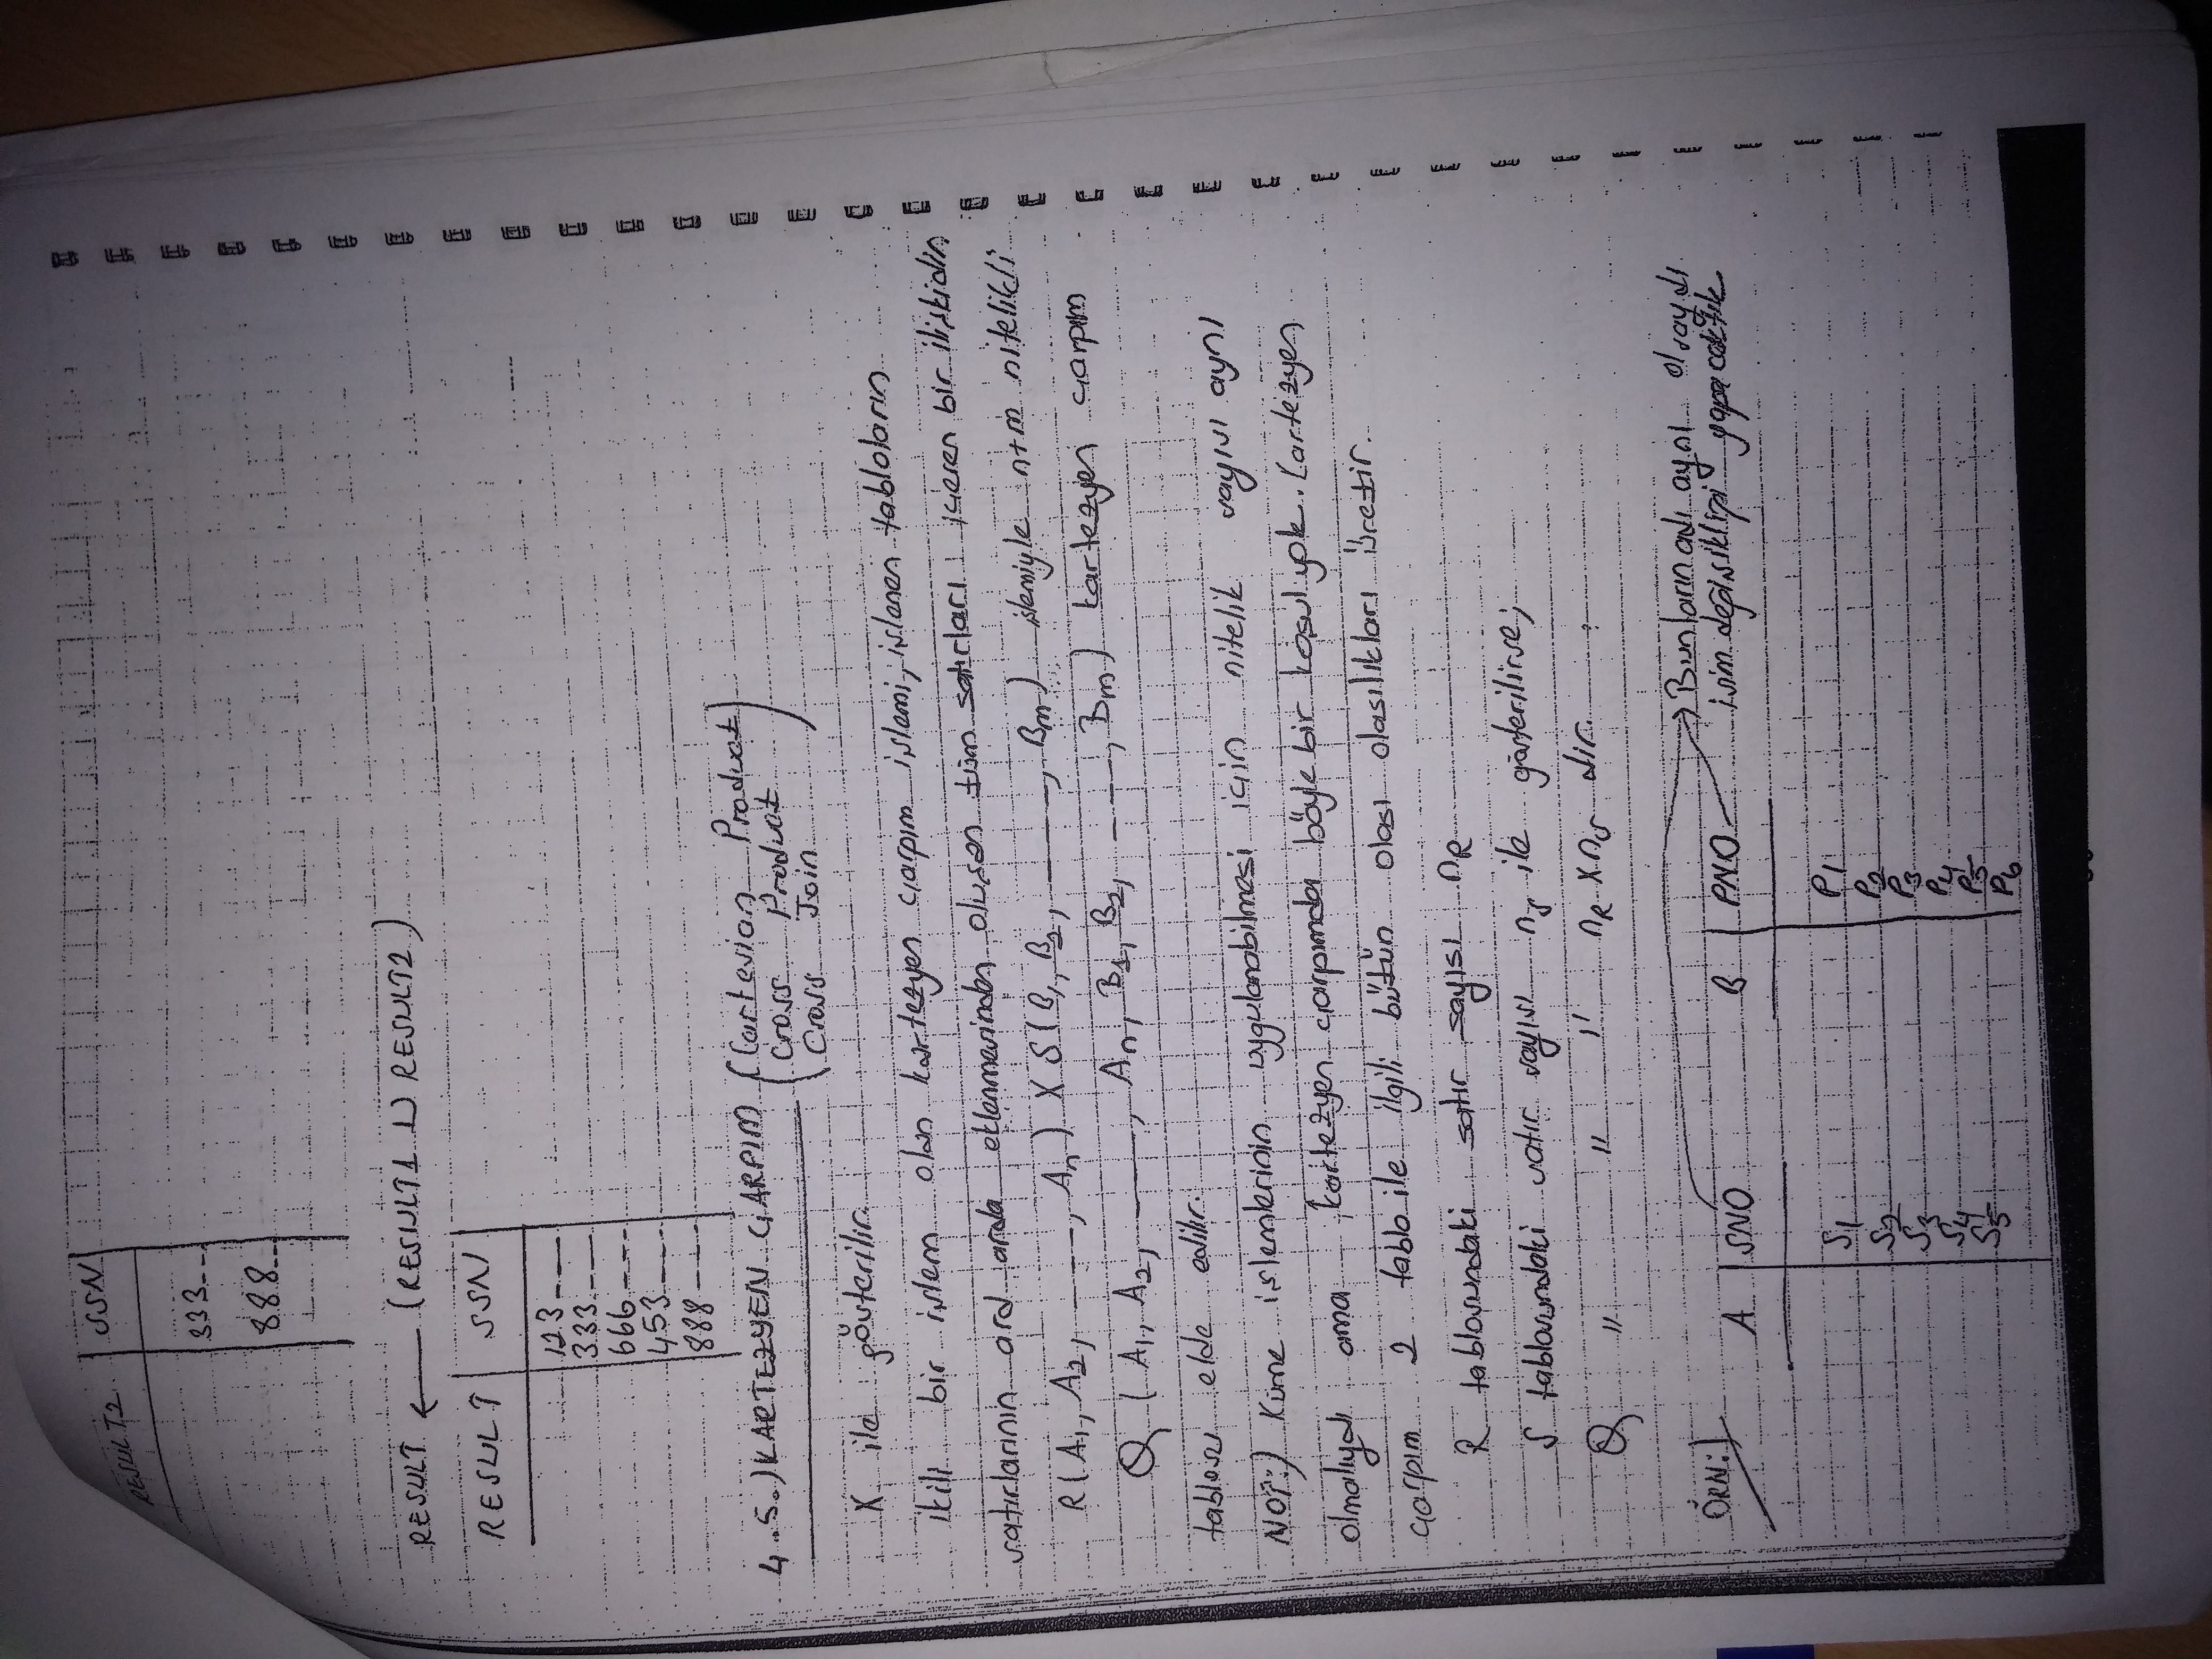 RESULT2 | SSN
333--
888--
RESULT ← (RESULT1 ∪ RESULT2)
RESULT | SSN
123---
333---
666---
453----
888----
4.5.) KARTEZYEN ÇARPIM (Cartesian Product)
(Cross Product)
(Cross Join)
X ile gösterilir.
İkili bir işlem olan kartezyen çarpım işlemi, işlenen tabloların
satırlarının ard arda eklenmesinden oluşan tüm satırları içeren bir ilişkidir.
R(A1, A2, ----, An) X S(B1, B2, ----, Bm) işlemiyle n+m nitelikli
Q (A1, A2, ----, An, B1, B2, ----, Bm) kartezyen çarpım
tablosu elde edilir.
NOT:) Küme işlemlerinin uygulanabilmesi için nitelik sayısı aynı
olmalıydı ama kartezyen çarpımda böyle bir koşul yok. Kartezyen
çarpım 2 tablo ile ilgili bütün olası olasılıkları üretir.
R tablosundaki satır sayısı nR
S tablosundaki satır sayısı ns ile gösterilirse;
Q " " " nR X ns dir.
ÖRN:)
Bunların adı aynı olsaydı
isim değişikliği yapacaktık
A | SNO
S1
S2
S3
S4
S5
B | PNO
P1
P2
P3
P4
P5
P6